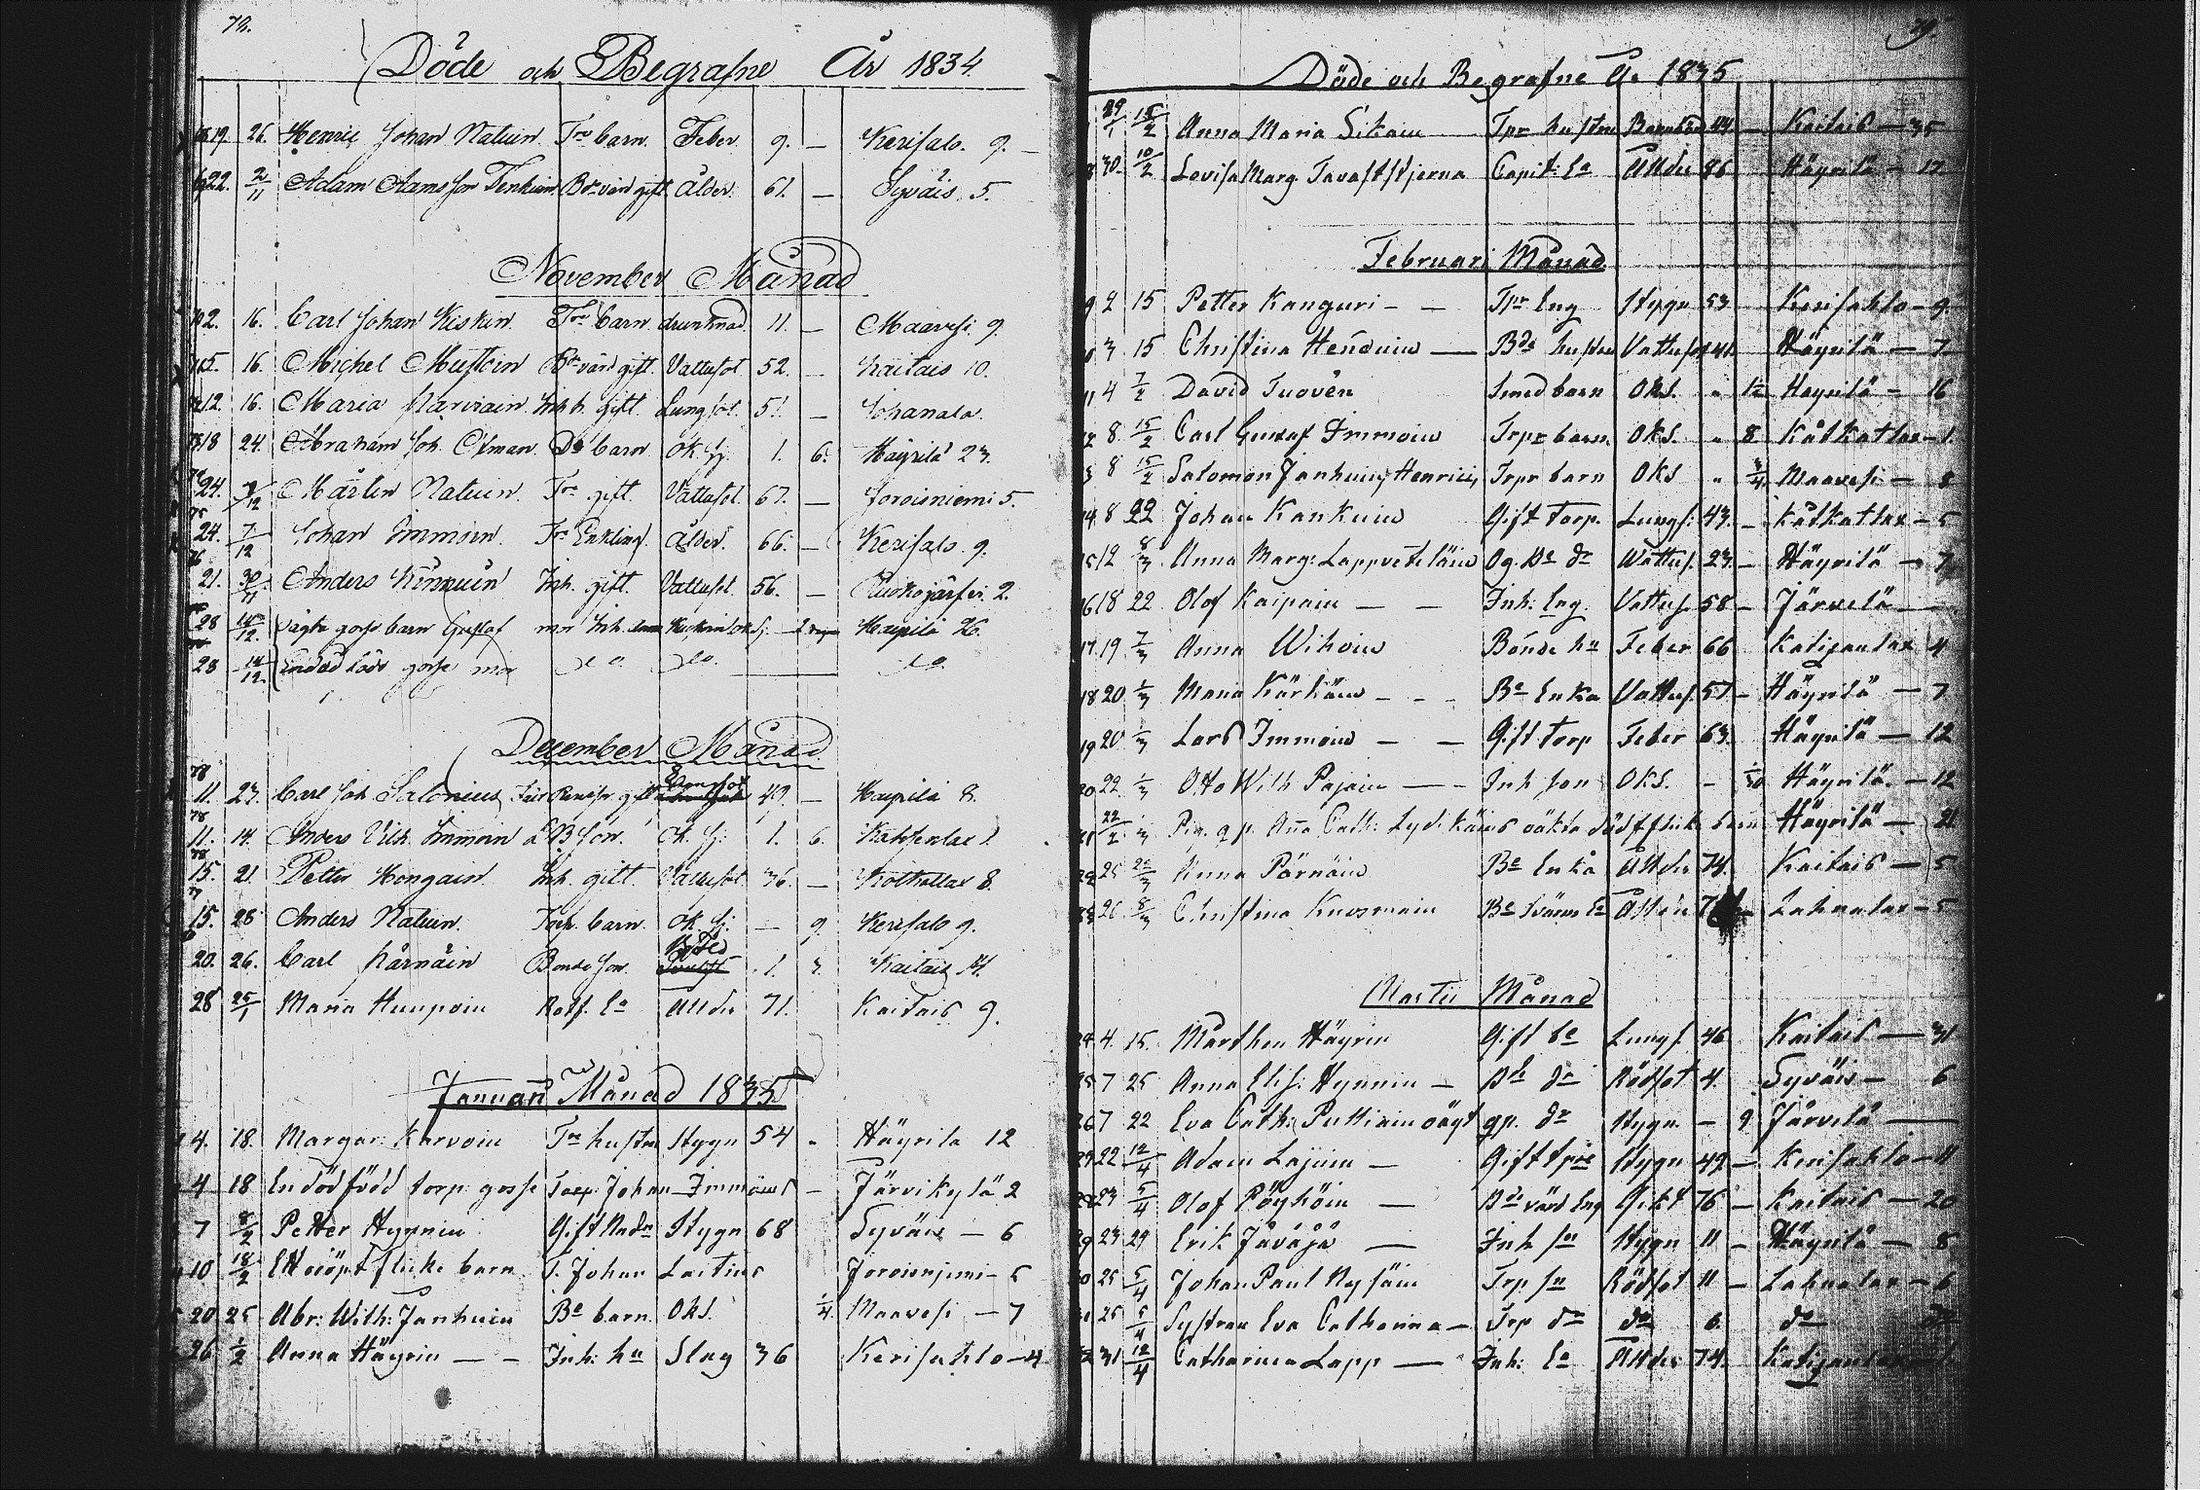 72.
Döde och Begrafne År 1834
19. 26. Henric Johan Natuin Trp barn. Feber. 9. — Kerisalo. 9. —
22. 2/11 Adam Adamsson Tenhuin Bo värd gift Ålder. 61. — Syväis. 5.
November Månad
2. 16. Carl Johan Kiskin. Trp barn drunknad. 11. — Maavesi. 9.
5. 16. Michel Mustoin Bo värd gift. Vattusot 52. — Kaitais 10.
12. 16. Maria Karviain Inh. gift. Lungsot. 51. — Johanala.
18 24. Abraham Joh. barn ok sj. 1. 6. Häyrilä 23.
24. 7/12 Mårten Natuin. Tr. gift. Vattusot. 67. — Joroisniemi 5.
24. 7/12 Johan Immoin. Tr. Enkling. Ålder. 66. — Kerisalo. 9.
21. 30/11 Anders Kinnuin Inh. gift. Vattusot. 56. — Ruokojärfvi 2.
28 14/12. oägta gosse barn Gustaf mor Inh. Häyrilä 26.
28 14/12. En död född gosse mor do. do. do.
December Månad
11. 23. Carl Joh. Salonius gift 49. — Häyrilä 8.
11. 14. Anders Vilh. Immoin Bd son. Ok. sj. 1. 6. Kåtkatlax 1.
15. 21. Petter Hongain. Inh. gift. Vattusot 36. — Kåtkatlax 8.
15. 28 Anders Natuin. Torp. barn. ok. sj. — 9. Kerisalo 9.
20. 26. Carl Kärnäin Bonde son. 1. 3. Kaitais 14.
28 25/1 Maria Huupoin Rotf. Ea Ållder 71. Kaitais 9.
Januari Månad 1835
4. 18. Margar. Karvoin Trp hustru Stygn 54 Häyrilä 12
4 18 En död född torp. gosse Torp. Johan Immoins — Järvikylä 2
7 8/2 Petter Hynnin Gift Stygn 68 Syväis — 6
10 18/2 Ett oöpt flicke barn T. Johan Laitins Joroisnjemi — 5
20 25 Abr: Wilh: Janhuin Be barn Oks. 1/4 Maavesi — 7
26 1/2 Anna Häyrin — — Inh: hu Slag 36 Kerisahlo — 4
79.
Döde och Begrafne År 1835
29/1 15/2 Anna Maria Sikain Tpr hustru Barnsbd 44 — Kaitais — 35
30. 10/2 Lovisa Marg. Tavaststjerna Capit: Ea Ållder 86 Häyrilä — 17
Februari Månad
2 15 Petter Kanguri — — Tpr Eng Stygn 53 Kerisahlo — 9
3 15 Christina Henduin — Bde hustru Vattus. 41 Häyrilä — 7
4 7/2 David Tuovén Smed barn Oks. " 1/2 Häyrilä — 16
8. 15/2 Carl Gustaf Immoin Torpr barn. Oks. " 8 Kåtkatlax — 1
8 15/2 Salomon Janhuin, Henrics, Trpr barn Oks " 3/4 Maavesi — 8
14. 8 22 Johan Kankuin Gift torp. Lungs: 43. — Kåtkatlax — 5
15 12 8/3 Anna Marg: Lappveteläin Og. Be dr Wattus. 23. — Häyrilä — 7
16 18 22 Olof Kaipain — — Inh: Eng. Vattus. 58 — Järvelä —
17. 19. 7/3 Anna Wihoin Bonde hu Feber 66 Katijanlax 4
18 20 1/3 Maria Kärkäin — — Be Enka Vattus. 57 — Häyrilä — 7
19 20 1/3 Lars Immoin — — Gift torp Feber 63. Häyrilä — 12
20 22. 1/3 Otto Wilh Pajain — — Inh son Oks. — 1/30 Häyrilä — 12
21 22/2 1/3 Pig. Ana Cath: oäkta dödff flick barn Häyrilä — 21
22 25 Anna Pärnäin Be Enka Ållder 74. Kaitais — 5
23 26 8/3 Christina Kuosmain Be Ållder Lahnalax — 5
Martii Månad
24 4. 15. Marthen Häyrin Gift be Lungs. 46 Kaitais — 31
25 7 25 Anna Elis: Hynnin — dr Rödsot 4. Syväis — 6
26 7 22 Eva Cath: oägt gp. dr Stygn — 9 Järvelä —
22 12/4 Adam Lajuin — Gift Stygn 49. — Kerisahlo — 11
28 23 5/4 Olof Pöyhöin — Bde värd Eng Gikt 76 — Kaitais — 20
29 23 29 Erik Jäväjä — Inh sn Stygn 11 — Häyrilä — 8
30 25 5/4 Johan Paul Nysäin Trp sn Rödsot 11 — Lahnalax — 6
31 25 5/4 Systran Eva Catharina — Trp dr do 6. do do
32 31 12/4 Catharina Lapp — Inh: Ea Ållder 74. Katijanlax — 1